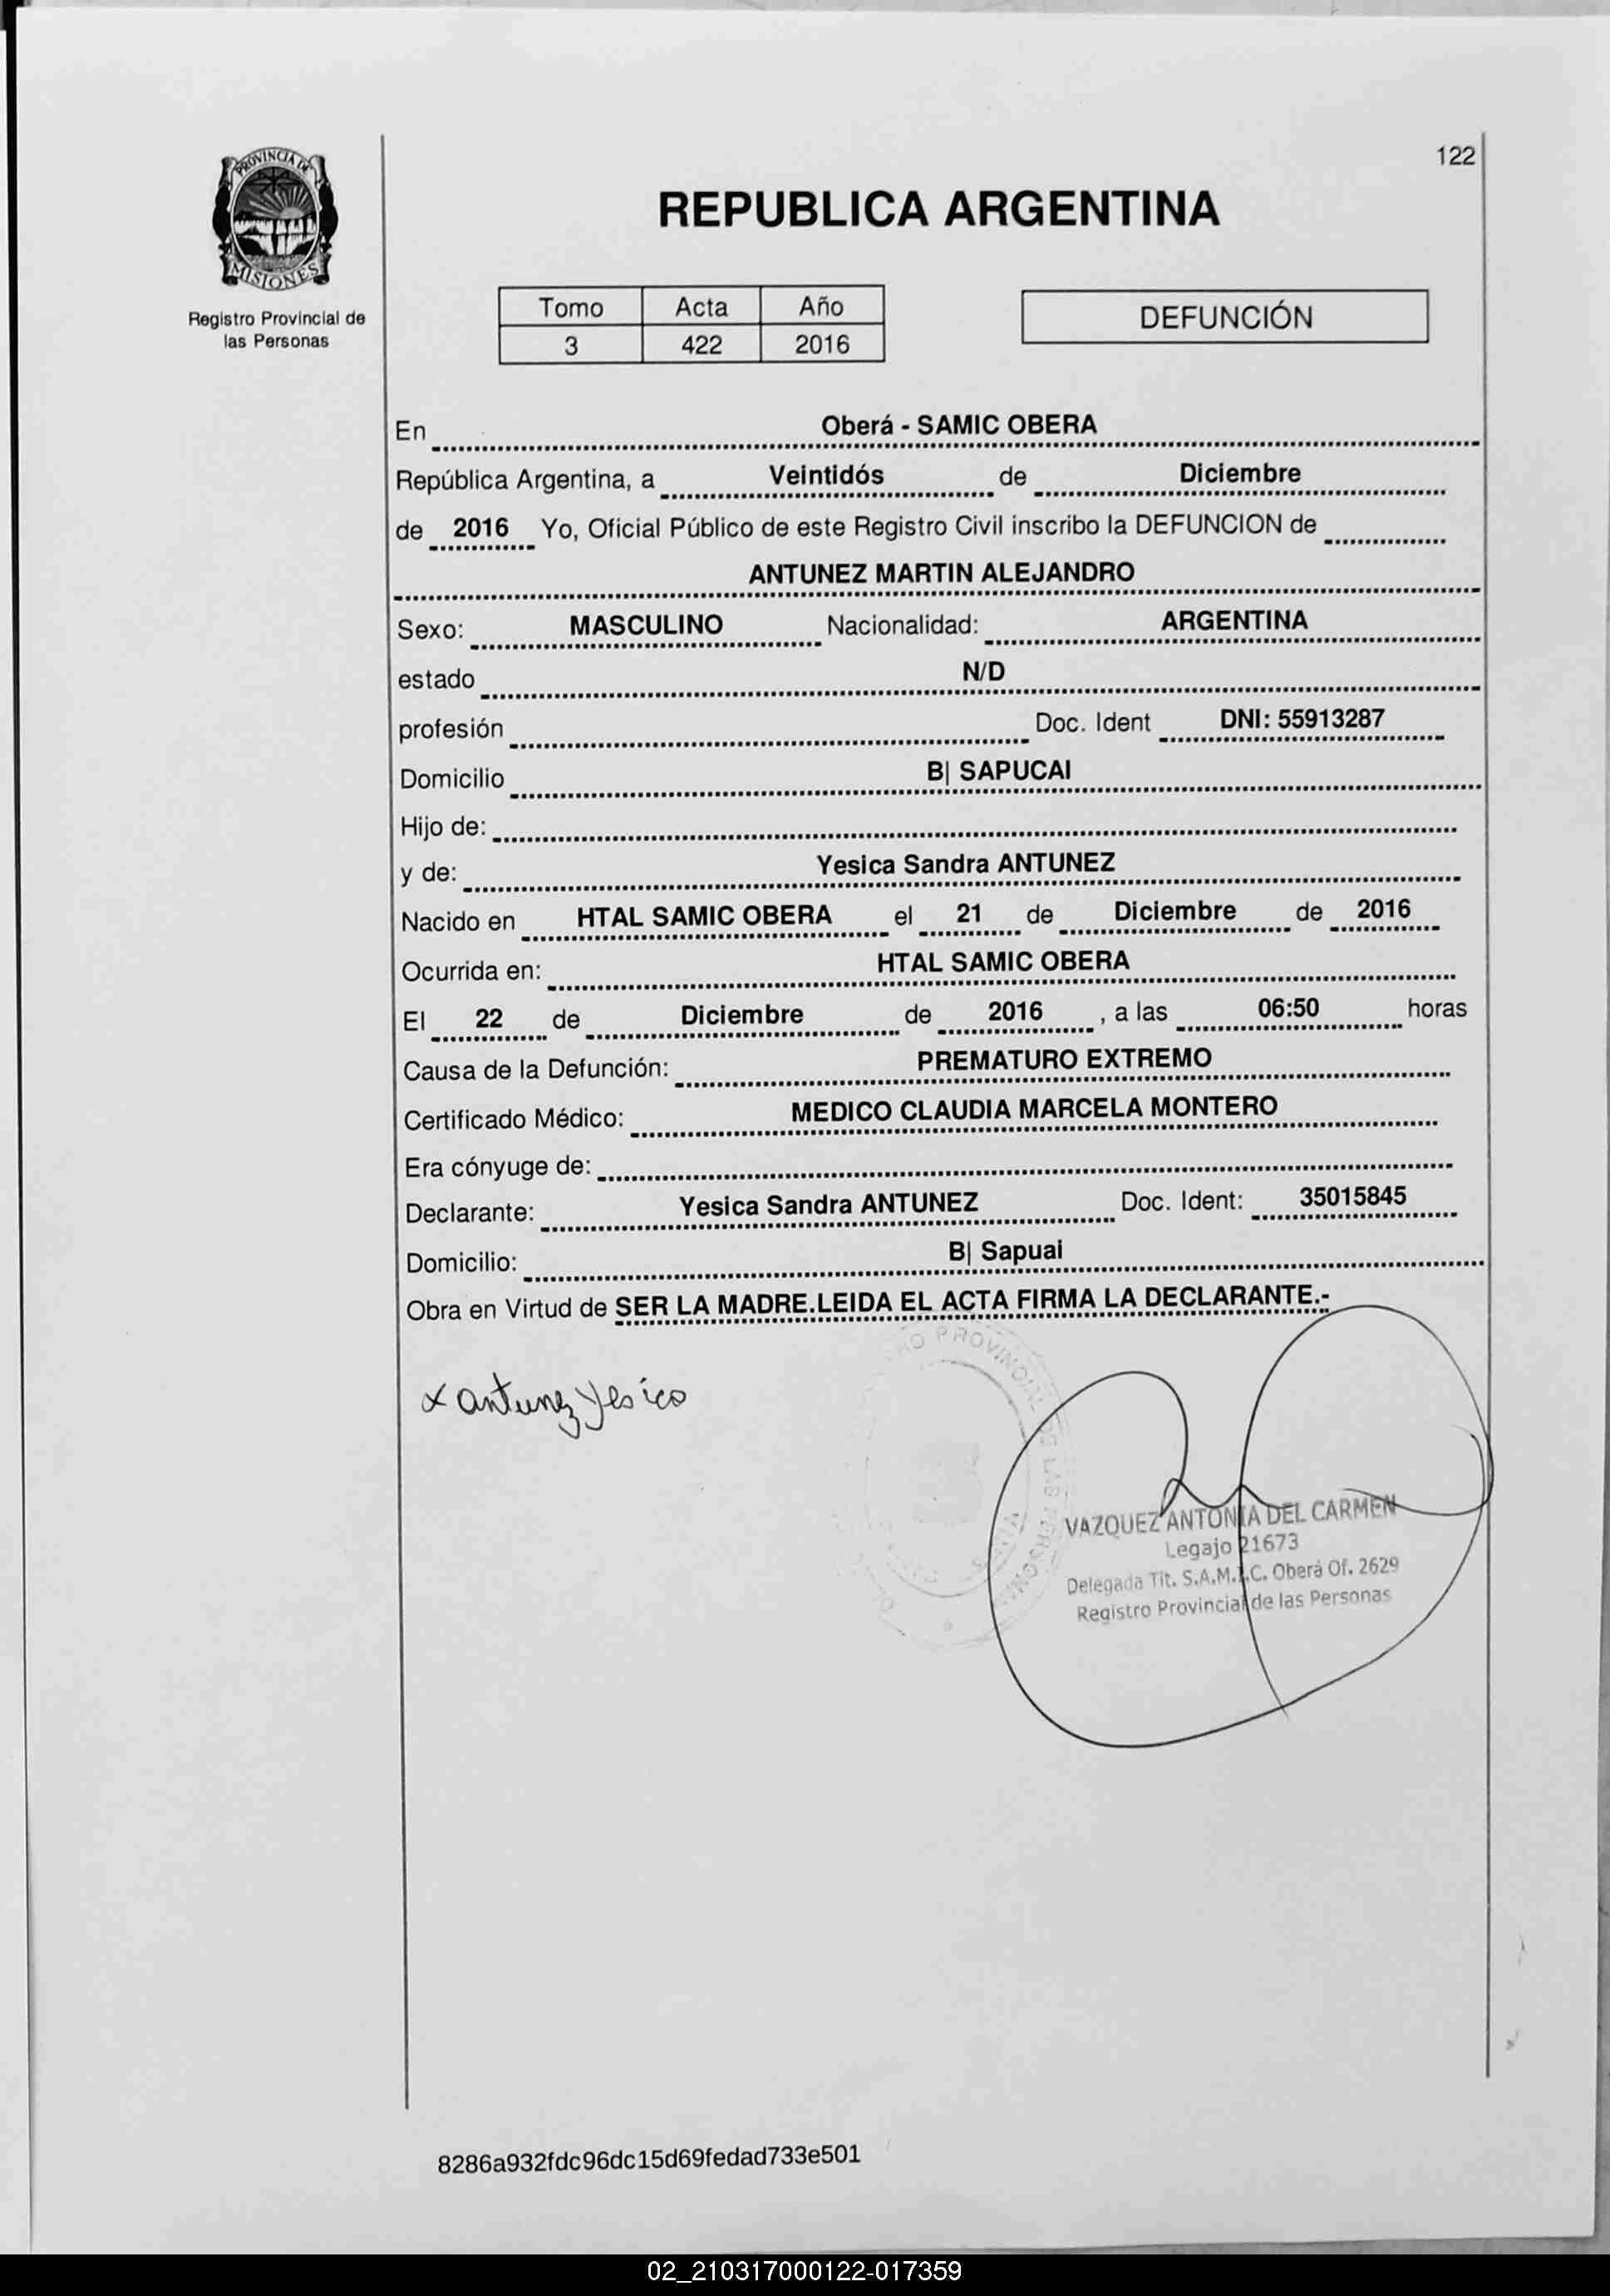 122
PROVINCIA DE
MISIONES
Registro Provincial de
las Personas
REPUBLICA ARGENTINA
Tomo Acta Año
3 422 2016
DEFUNCIÓN
En Oberá - SAMIC OBERA
República Argentina, a Veintidós de Diciembre
de 2016 Yo, Oficial Público de este Registro Civil inscribo la DEFUNCION de
ANTUNEZ MARTIN ALEJANDRO
Sexo: MASCULINO Nacionalidad: ARGENTINA
estado N/D
profesión Doc. Ident DNI: 55913287
Domicilio B| SAPUCAI
Hijo de:
y de: Yesica Sandra ANTUNEZ
Nacido en HTAL SAMIC OBERA el 21 de Diciembre de 2016
Ocurrida en: HTAL SAMIC OBERA
El 22 de Diciembre de 2016 , a las 06:50 horas
Causa de la Defunción: PREMATURO EXTREMO
Certificado Médico: MEDICO CLAUDIA MARCELA MONTERO
Era cónyuge de:
Declarante: Yesica Sandra ANTUNEZ Doc. Ident: 35015845
Domicilio: B| Sapuai
Obra en Virtud de SER LA MADRE.LEIDA EL ACTA FIRMA LA DECLARANTE.-
x Antunez Yesica
VAZQUEZ ANTONIA DEL CARMEN
Legajo 21673
Delegada Tit. S.A.M.I.C. Oberá Of. 2629
Registro Provincial de las Personas
8286a932fdc96dc15d69fedad733e501
02_210317000122-017359